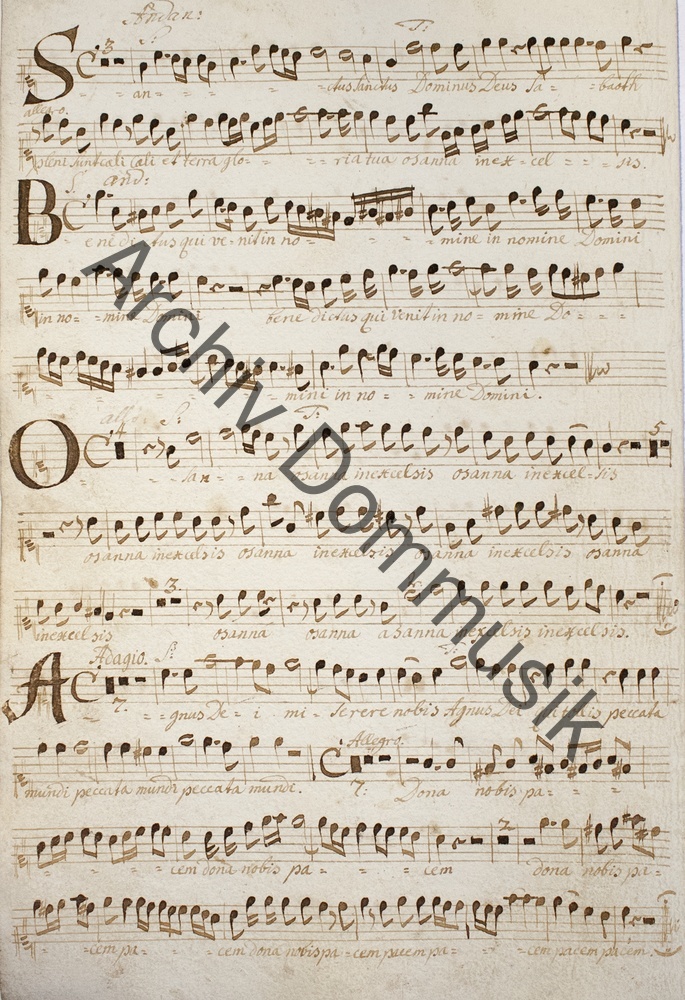 Andan:
3 S: T:
S - - an - - - - ctus sanctus Dominus Deus Sa - baoth
allegro.
pleni sunt cæli cæli et terra glo - - - - ria tua osanna in ex - cel - - - sis.
S. and:
B - enedictus qui ve - nit in no - - - - - mine in nomine Domini
in no - - mine Domini benedictus qui venit in no - mine Do - - -
- - - - - - - mini in no - mine Domini.
all: S: T:
4 5
O - - - san - - na osanna in excelsis osanna in excel - sis
osanna in excelsis osanna in excelsis osanna in excelsis osanna
3.
in excelsis osanna osanna osanna in excelsis in excelsis.
Adagio. S:
A - - - gnus De - i mi - serere nobis Agnus Dei qui tollis peccata
7.
Allegro.
mundi peccata mundi peccata mundi. 7: Dona nobis pa - - -
2
- - - cem dona nobis pa - - - - cem dona nobis pa -
- - cem pa - - - cem dona nobis pa - cem pacem pa - - - cem pacem pacem.
Archiv Dommusik